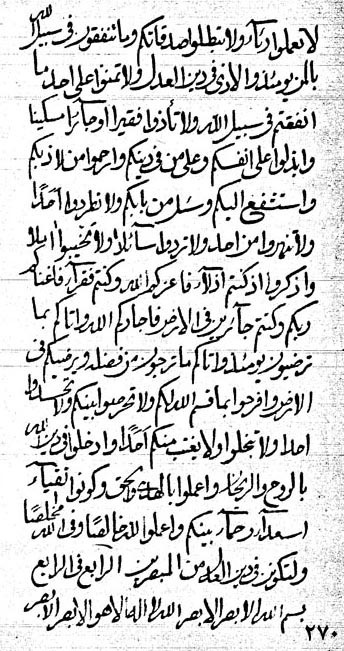 لا تعملوا رياء ولا تبطلوا صدقاتكم وما تنفقون في سبيل الله
بالمن يومئذ والاذى في دين العدل ولا تمنوا على احد بما
انفقتم في سبيل الله ولا تأذوا فقيرا او جائرا مسكينا
وابذلوا على انفسكم وعلى من في دينكم وارحموا من لاذ بكم
واستشفع اليكم وسئل من بابكم ولا تطردوا احدا
ولا تنهروا من احد ولا تردوا سآئلا ولا تخيبوا املا
واذكروا اذ كنتم اذلآء فاعزكم الله وكنتم فقرآء فاغناكم
ربكم وكنتم جآئرين في الارض فاجاركم الله واتاكم بما
ترضيون يومئذ واتاكم ما ترجون من فضله ويرضيكم في
الارض وافرحوا بما قسم الله لكم ولا تحرصوا بينكم ولا تحسدوا
احدا ولا تبخلوا ولا يغتب منكم احدا وادخلوا في دين الله
بالروح والريحان واعملوا بالهدى والحق وكونوا اتقيآء
اسعدآء رحمآء بينكم واعملوا لله خالصا وفي الله مخلصا
ولتكونن في دين الله من المبصرين الرابع في الرابع
بسم الله الابصر الابصر الله لا اله الا هو الابصر الابصر
٢٧٠